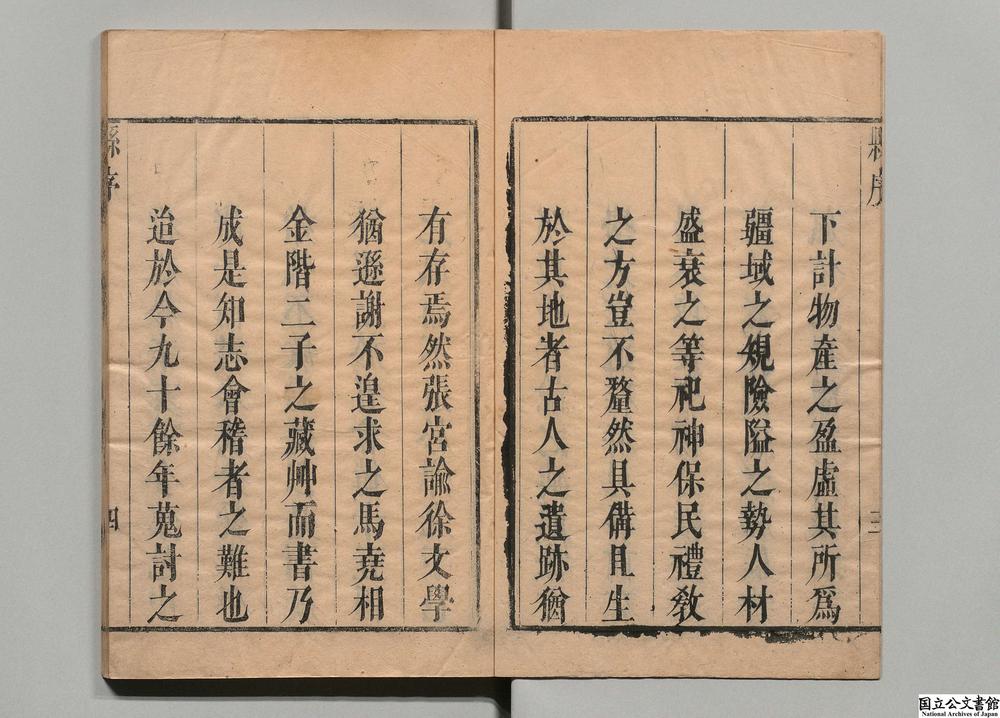 下計物產之盈虛其所爲
疆域之規險隘之勢人材
盛衰之等祀神保民禮敎
之方豈不釐然具備且生
於其地者古人之遺跡猶
有存焉然張宮諭徐文學
猶遜謝不遑求之馬堯相
金階二子之藏艸而書乃
成是知志會稽者之難也
迨於今九十餘年蒐討之
縣序
三
縣序
四
国立公文書館
National Archives of Japan